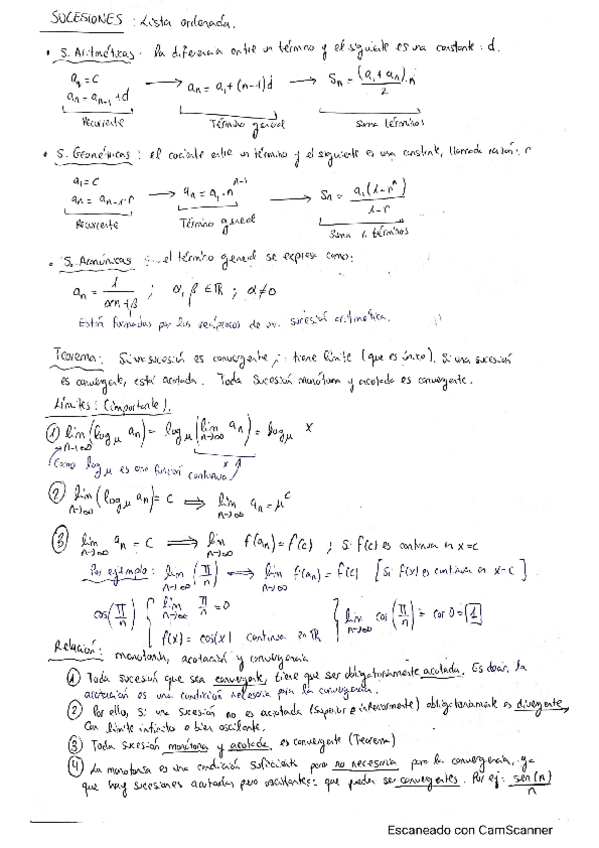 SUCESIONES : Lista ordenada.
• S. Aritméticas : la diferencia entre un término y el siguiente es una constante : d.
a₁ = c
aₙ = aₙ₋₁ + d → aₙ = a₁ + (n-1)d → Sₙ = (a₁ + aₙ)/2 · n
Recurrente Término general Suma términos
• S. Geométricas : el cociente entre un término y el siguiente es una constante, llamada razón : r
a₁ = c
aₙ = aₙ₋₁ · r → aₙ = a₁ · r^(n-1) → Sₙ = a₁(1-rⁿ)/(1-r)
Recurrente Término general Suma n términos
• S. Armónicas : el término general se expresa como:
aₙ = 1/(αn+β) ; α, β ∈ ℝ ; α ≠ 0
Están formadas por los recíprocos de una sucesión aritmética.
Teorema: Si una sucesión es convergente, tiene límite (que es único). Si una sucesión
es convergente, está acotada. Toda sucesión monótona y acotada es convergente.
Límites: (importante).
① lim n→∞ (log_μ aₙ) = log_μ (lim n→∞ aₙ) = log_μ x
Como log_μ es una función continua
② lim n→∞ (log_μ aₙ) = c ⟹ lim n→∞ aₙ = μ^c
③ lim n→∞ aₙ = c ⟹ lim n→∞ f(aₙ) = f(c) ; Si f(c) es continua en x=c
Por ejemplo: lim n→∞ (π/n) ⟹ lim n→∞ f(aₙ) = f(c) [Si f(x) es continua en x=c]
cos(π/n) { lim n→∞ π/n = 0 } lim n→∞ cos(π/n) = cos 0 = 1
f(x) = cos(x) continua en ℝ
Relación: monotonía, acotación y convergencia
① Toda sucesión que sea convergente, tiene que ser obligatoriamente acotada. Es decir, la
acotación es una condición necesaria para la convergencia.
② Por ello, si una sucesión no es acotada (superior e inferiormente) obligatoriamente es divergente,
con límite infinito o bien oscilante.
③ Toda sucesión monótona y acotada, es convergente (Teorema)
④ La monotonía es una condición suficiente pero no necesaria para la convergencia, ya
que hay sucesiones acotadas pero oscilantes que pueden ser convergentes. Por ej: sen(n)/n
Escaneado con CamScanner